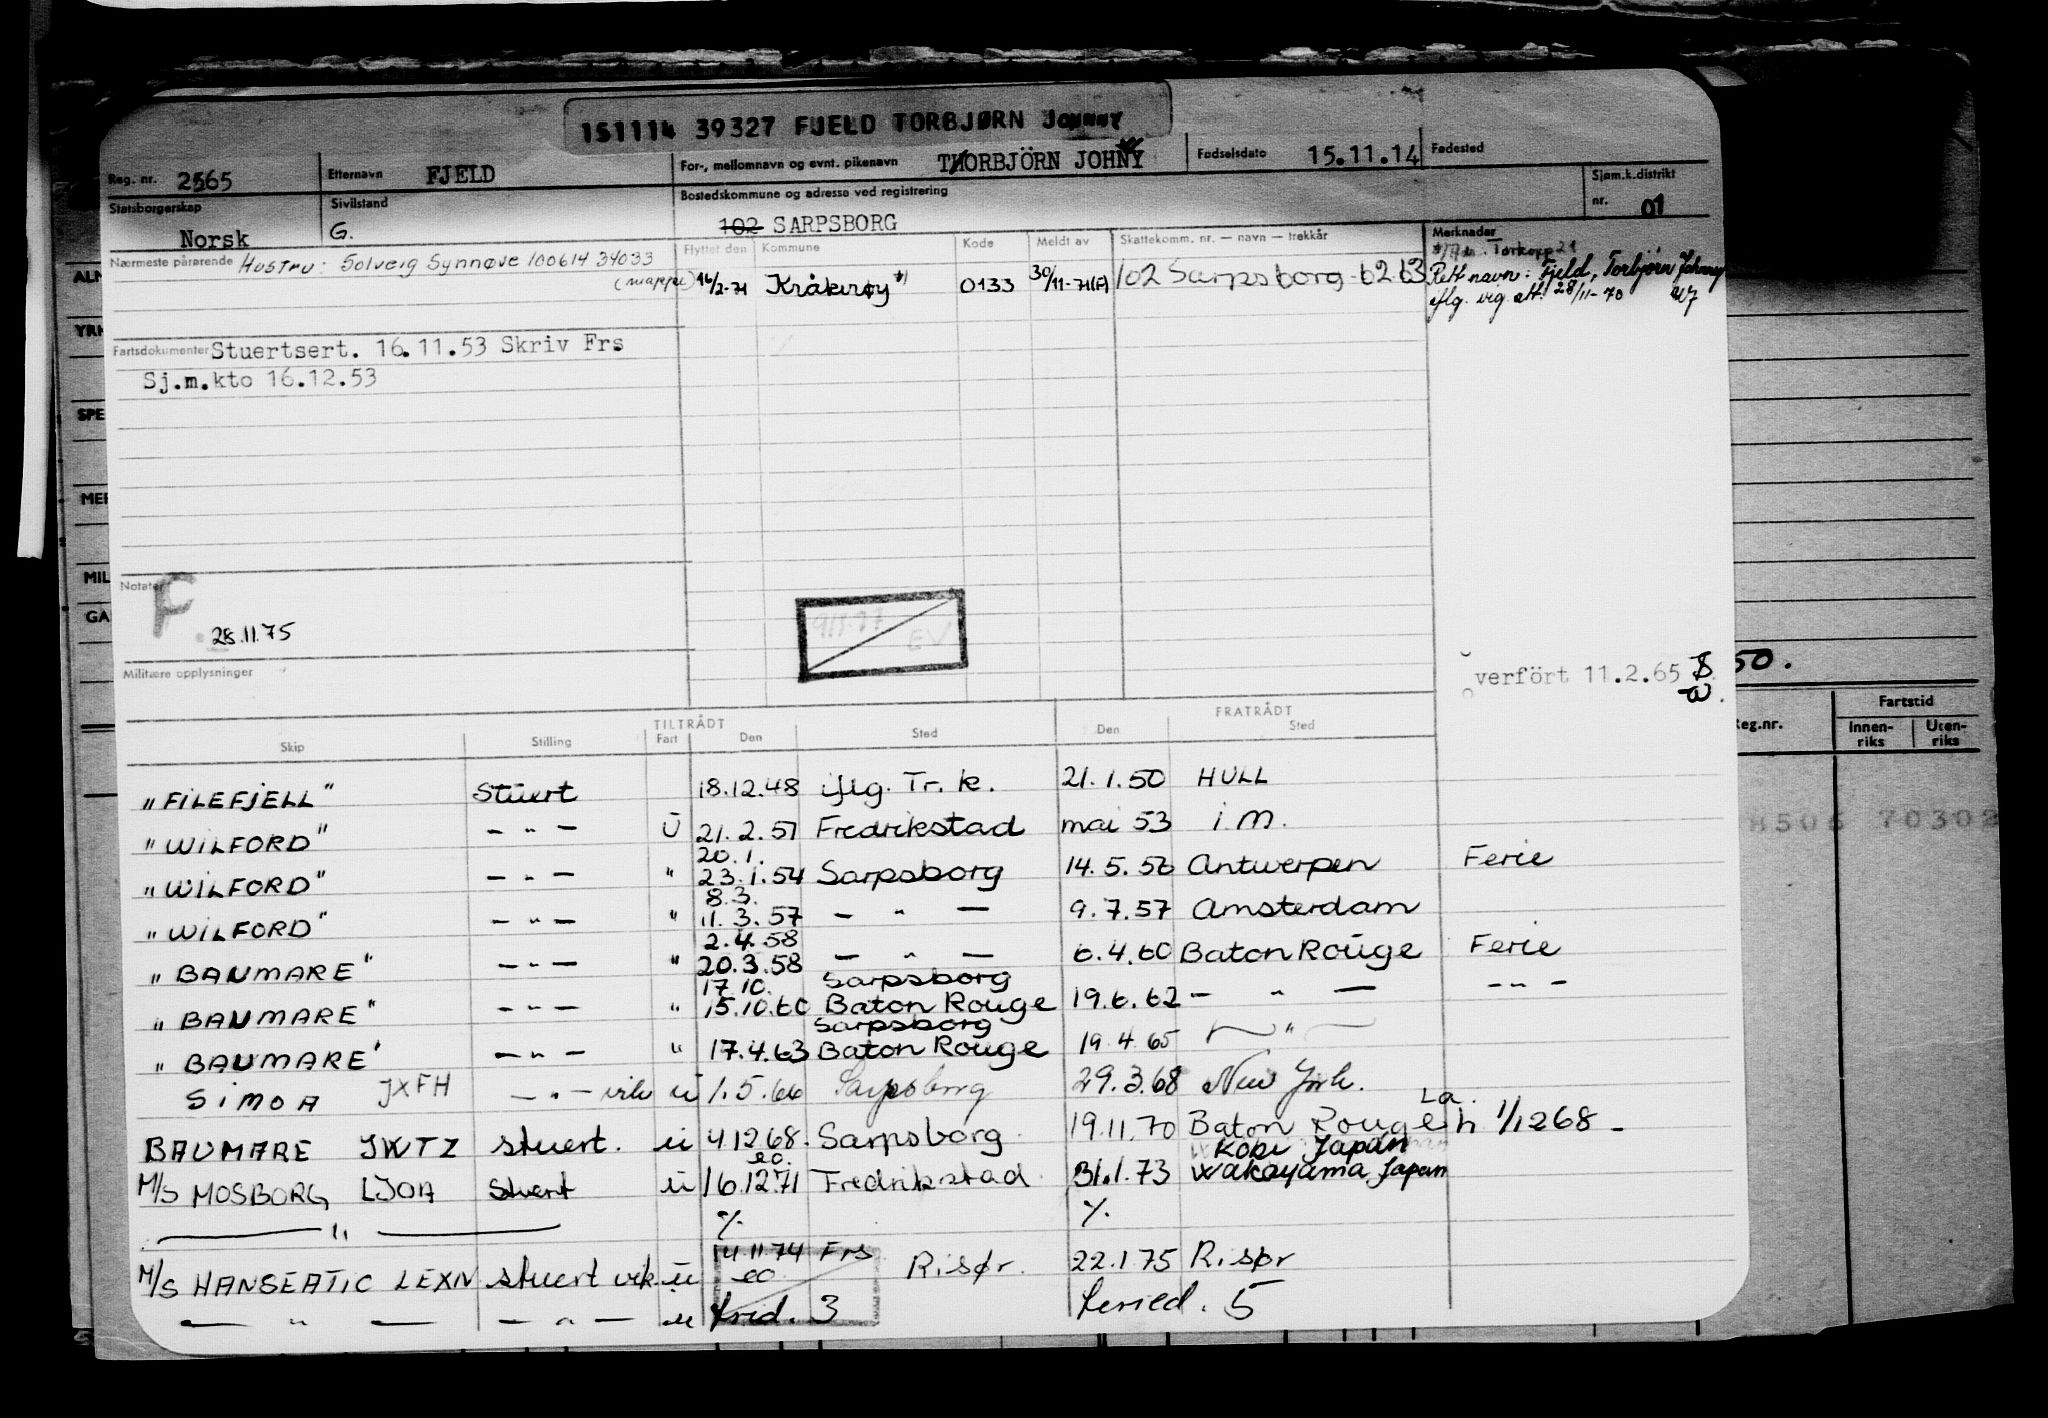 151114 39327 FJELD TORBJØRN JOHNNY
Reg. nr. 2565 Etternavn FJELD For-, mellomnavn og evnt. pikenavn THORBJÖRN JOHNY Fødselsdato 15.11.14 Fødested
Statsborgerskap Norsk Sivilstand G. Bostedskommune og adresse ved registrering 102 SARPSBORG Sjøm.k.distrikt nr. 01
Nærmeste pårørende Hustru: Solveig Synnøve 100614 34033 Flyttet den Kommune Kode Meldt av Skattekomm. nr. — navn — trekkår Merknader
(mappe) 16/2-71 Kråkerøy 0133 30/11-71(A) 102 Sarpsborg 62 63 Rett navn: Fjeld, Torbjørn Johnny
iflg. vig. att. 28/11-70
Fartsdokumenter Stuertsert. 16.11.53 Skriv Frs
Sj.m.kto 16.12.53
Notater F
28.11.75
Militære opplysninger
verført 11.2.65
50.
TILTRÅDT FRATRÅDT
Skip Stilling Fart Den Sted Den Sted
Reg.nr. Fartstid
Innen-riks Uten-riks
"FILEFJELL" Stuert 18.12.48 iflg. Tr. k. 21.1.50 HULL
"WILFORD" — " — Ü 21.2.51 Fredrikstad mai 53 i.m.
20.1.
"WILFORD" — " — " 23.1.54 Sarpsborg 14.5.56 Antwerpen Ferie
8.3.
"WILFORD" — " — " 11.3.57 — " — 9.7.57 Amsterdam
2.4.58
"BAUMARE" — " — " 20.3.58 — " — 6.4.60 Baton Rouge Ferie
17.10. Sarpsborg
"BAUMARE" — " — " 15.10.60 Baton Rouge 19.6.62 — " — — " —
Sarpsborg
"BAUMARE" — " — " 17.4.63 Baton Rouge 19.4.65 — " —
SIMOA JXFH — " — vik ü 1.5.66 Sarpsborg 29.3.68 New York.
BAUMARE JWTZ stuert. ü 4.12.68. Sarpsborg 19.11.70 Baton Rouge La. h 1/1268 -
Kobe Japan
M/S MOSBORG LJOA Stuert ü 16.12.71 Fredrikstad 31.1.73 Wakayama Japan
— " — % %
M/S HANSEATIC LEXN stuert vik ü 14.11.74 Frs Risør. 22.1.75 Risør
— " — — " — ü 3 5